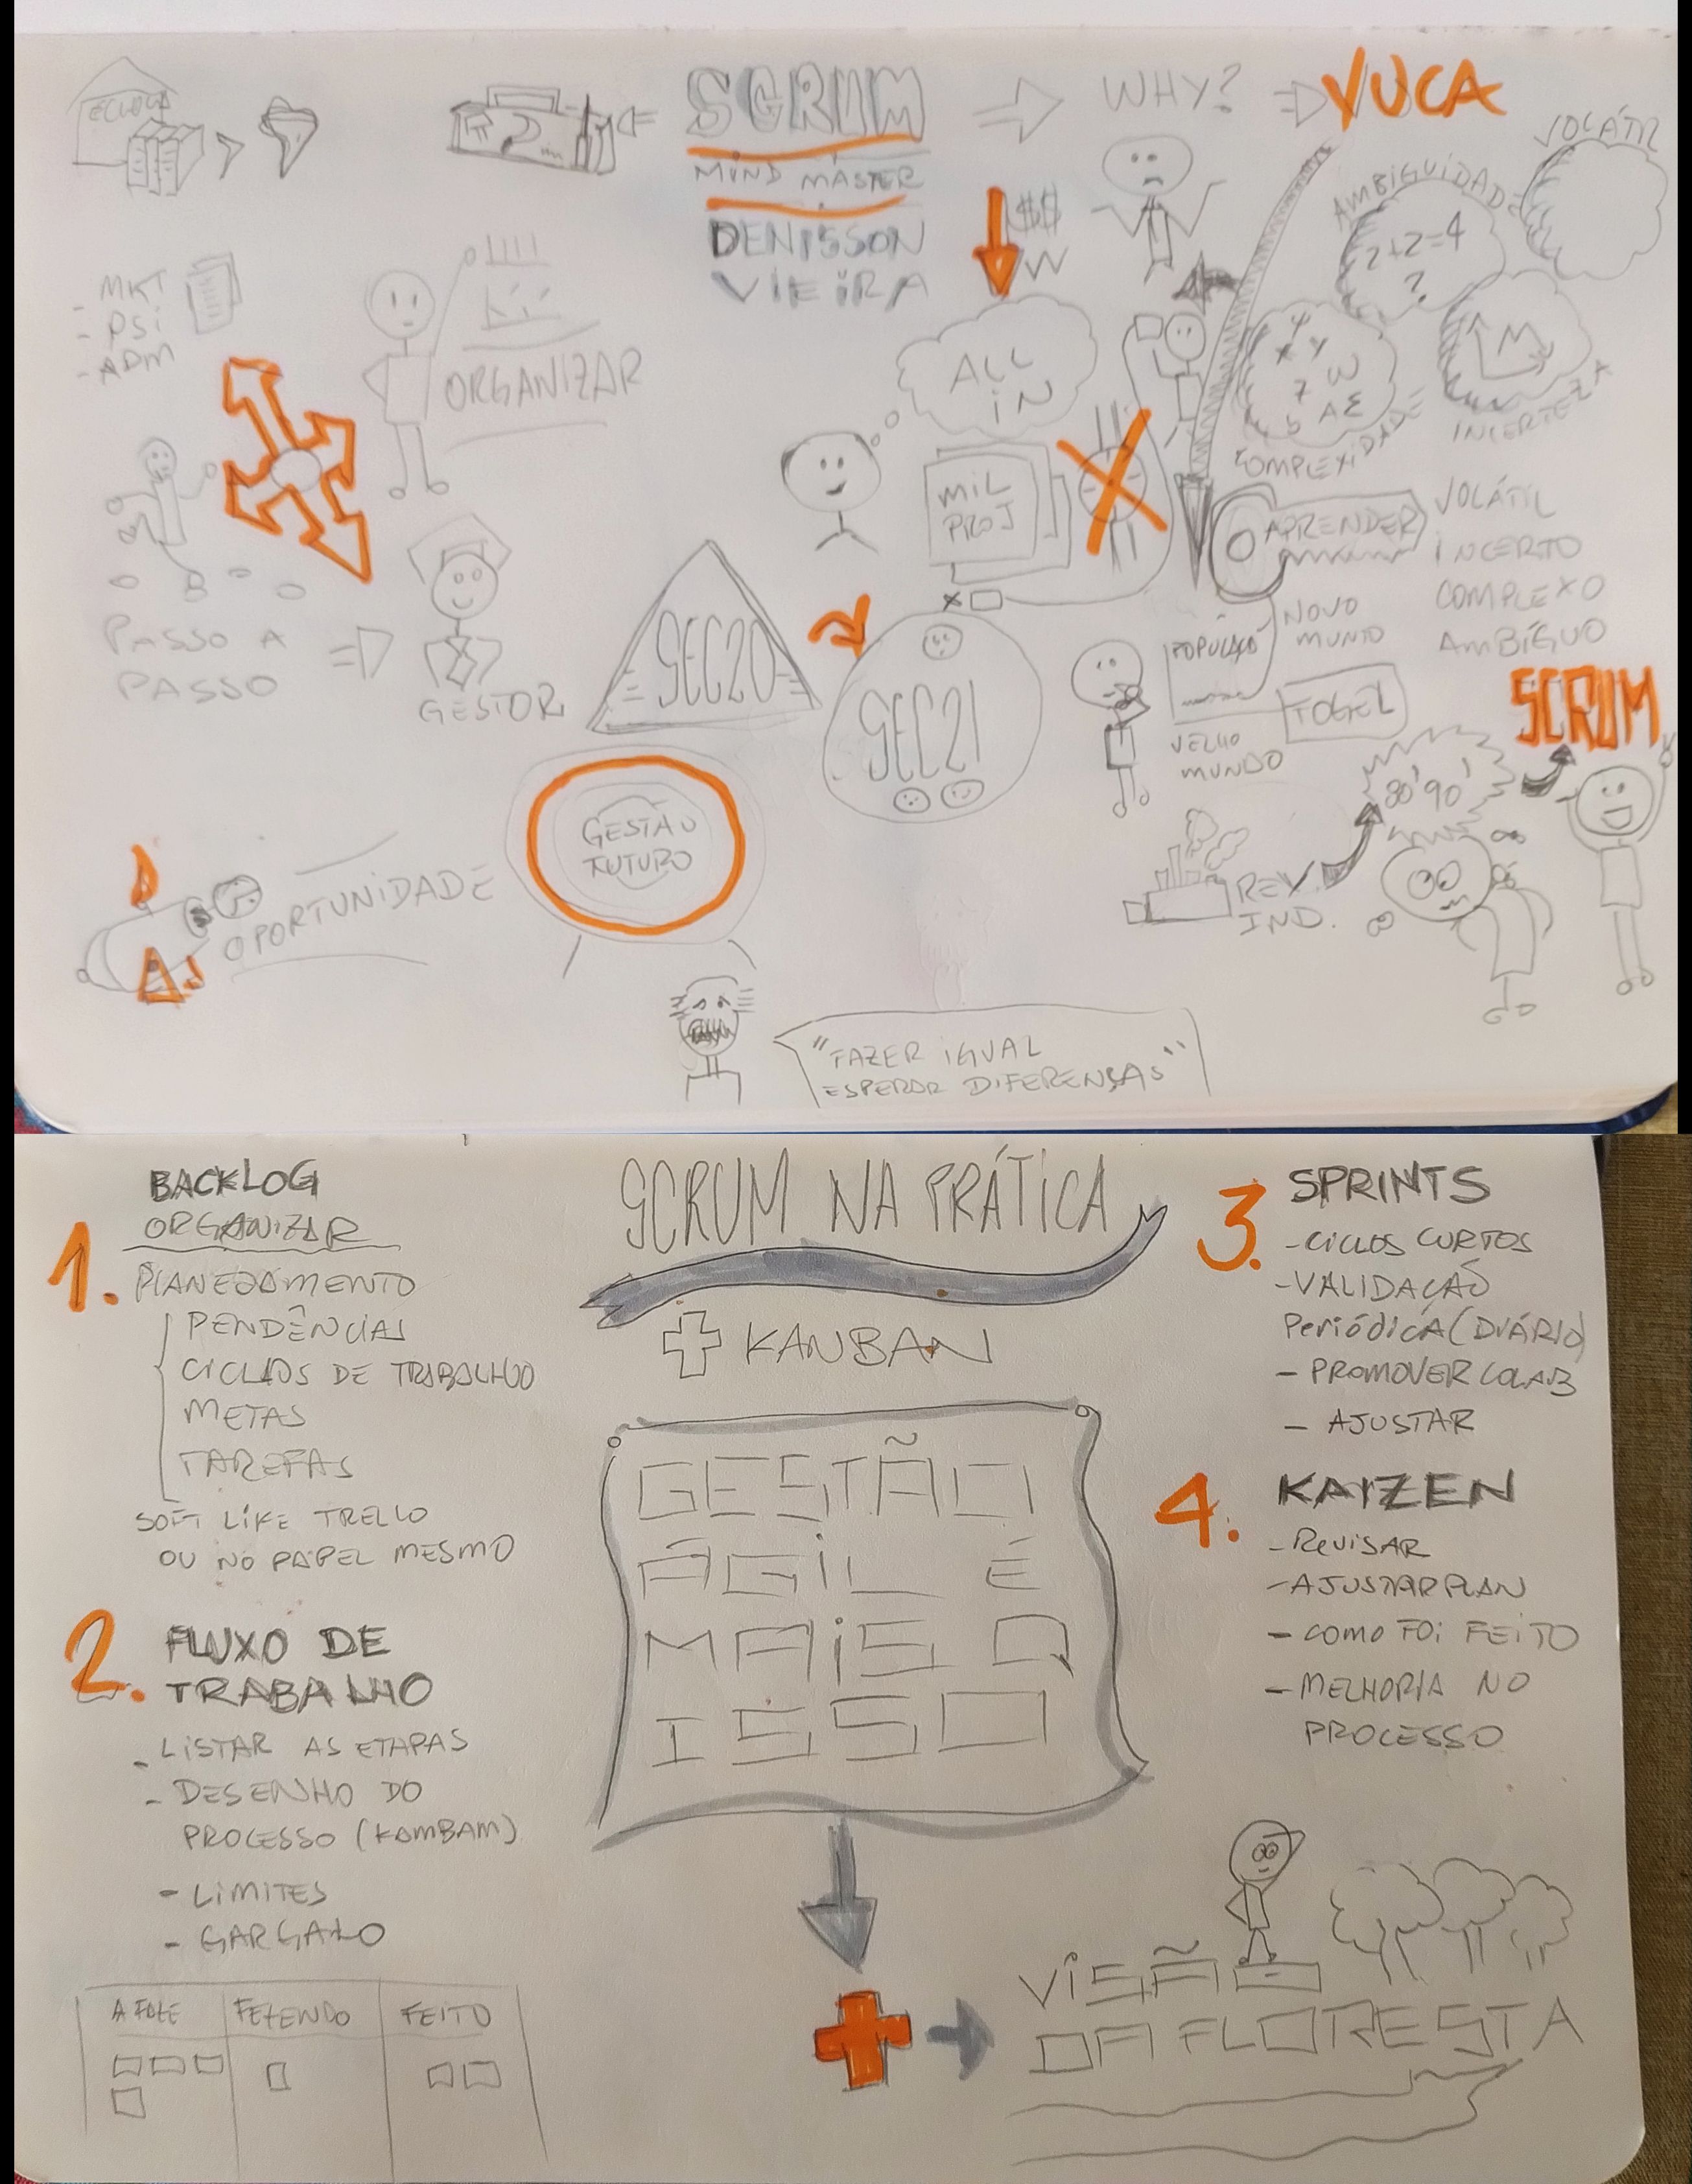 SCRUM
MIND MASTER
DENISSON
VIEIRA
WHY?
VUCA
VOLÁTIL
AMBIGUIDADE
2+2=4
?
INCERTEZA
COMPLEXIDADE
$$
W
ALL
IN
MIL
PROJ
- MKT
- PSI
- ADM
ORGANIZAR
PASSO A
PASSO
GESTOR
SEC20
SEC21
APRENDER
VOLÁTIL
INCERTO
COMPLEXO
AMBÍGUO
NOVO
MUNTO
VELHO
MUNDO
FOGEL
SCRUM
80' 90'
REV.
IND.
GESTÃO
FUTURO
OPORTUNIDADE
"FAZER IGUAL
ESPERAR DIFERENSAS"
SCRUM NA PRÁTICA
+ KANBAN
1. BACKLOG
ORGANIZAR
PLANEJAMENTO
PENDÊNCIAS
CICLAOS DE TRABALHO
METAS
TAREFAS
SOFT LIKE TRELLO
OU NO PAPEL MESMO
2. FLUXO DE
TRABALHO
- LISTAR AS ETAPAS
- DESENHO DO
PROCESSO (KAMBAM)
- LIMITES
- GARGALO
A FAZE FEZENDO FEITO
GESTÃO
ÁGIL É
MAIS Q
ISSO
3. SPRINTS
- CICLOS CURTOS
- VALIDAÇÃO
PERIÓDICA (DIÁRIO)
- PROMOVER COLAB
- AJUSTAR
4. KAIZEN
- REVISAR
- AJUSTAR PLAN
- COMO FOI FEITO
- MELHORIA NO
PROCESSO
VISÃO
DA FLORESTA